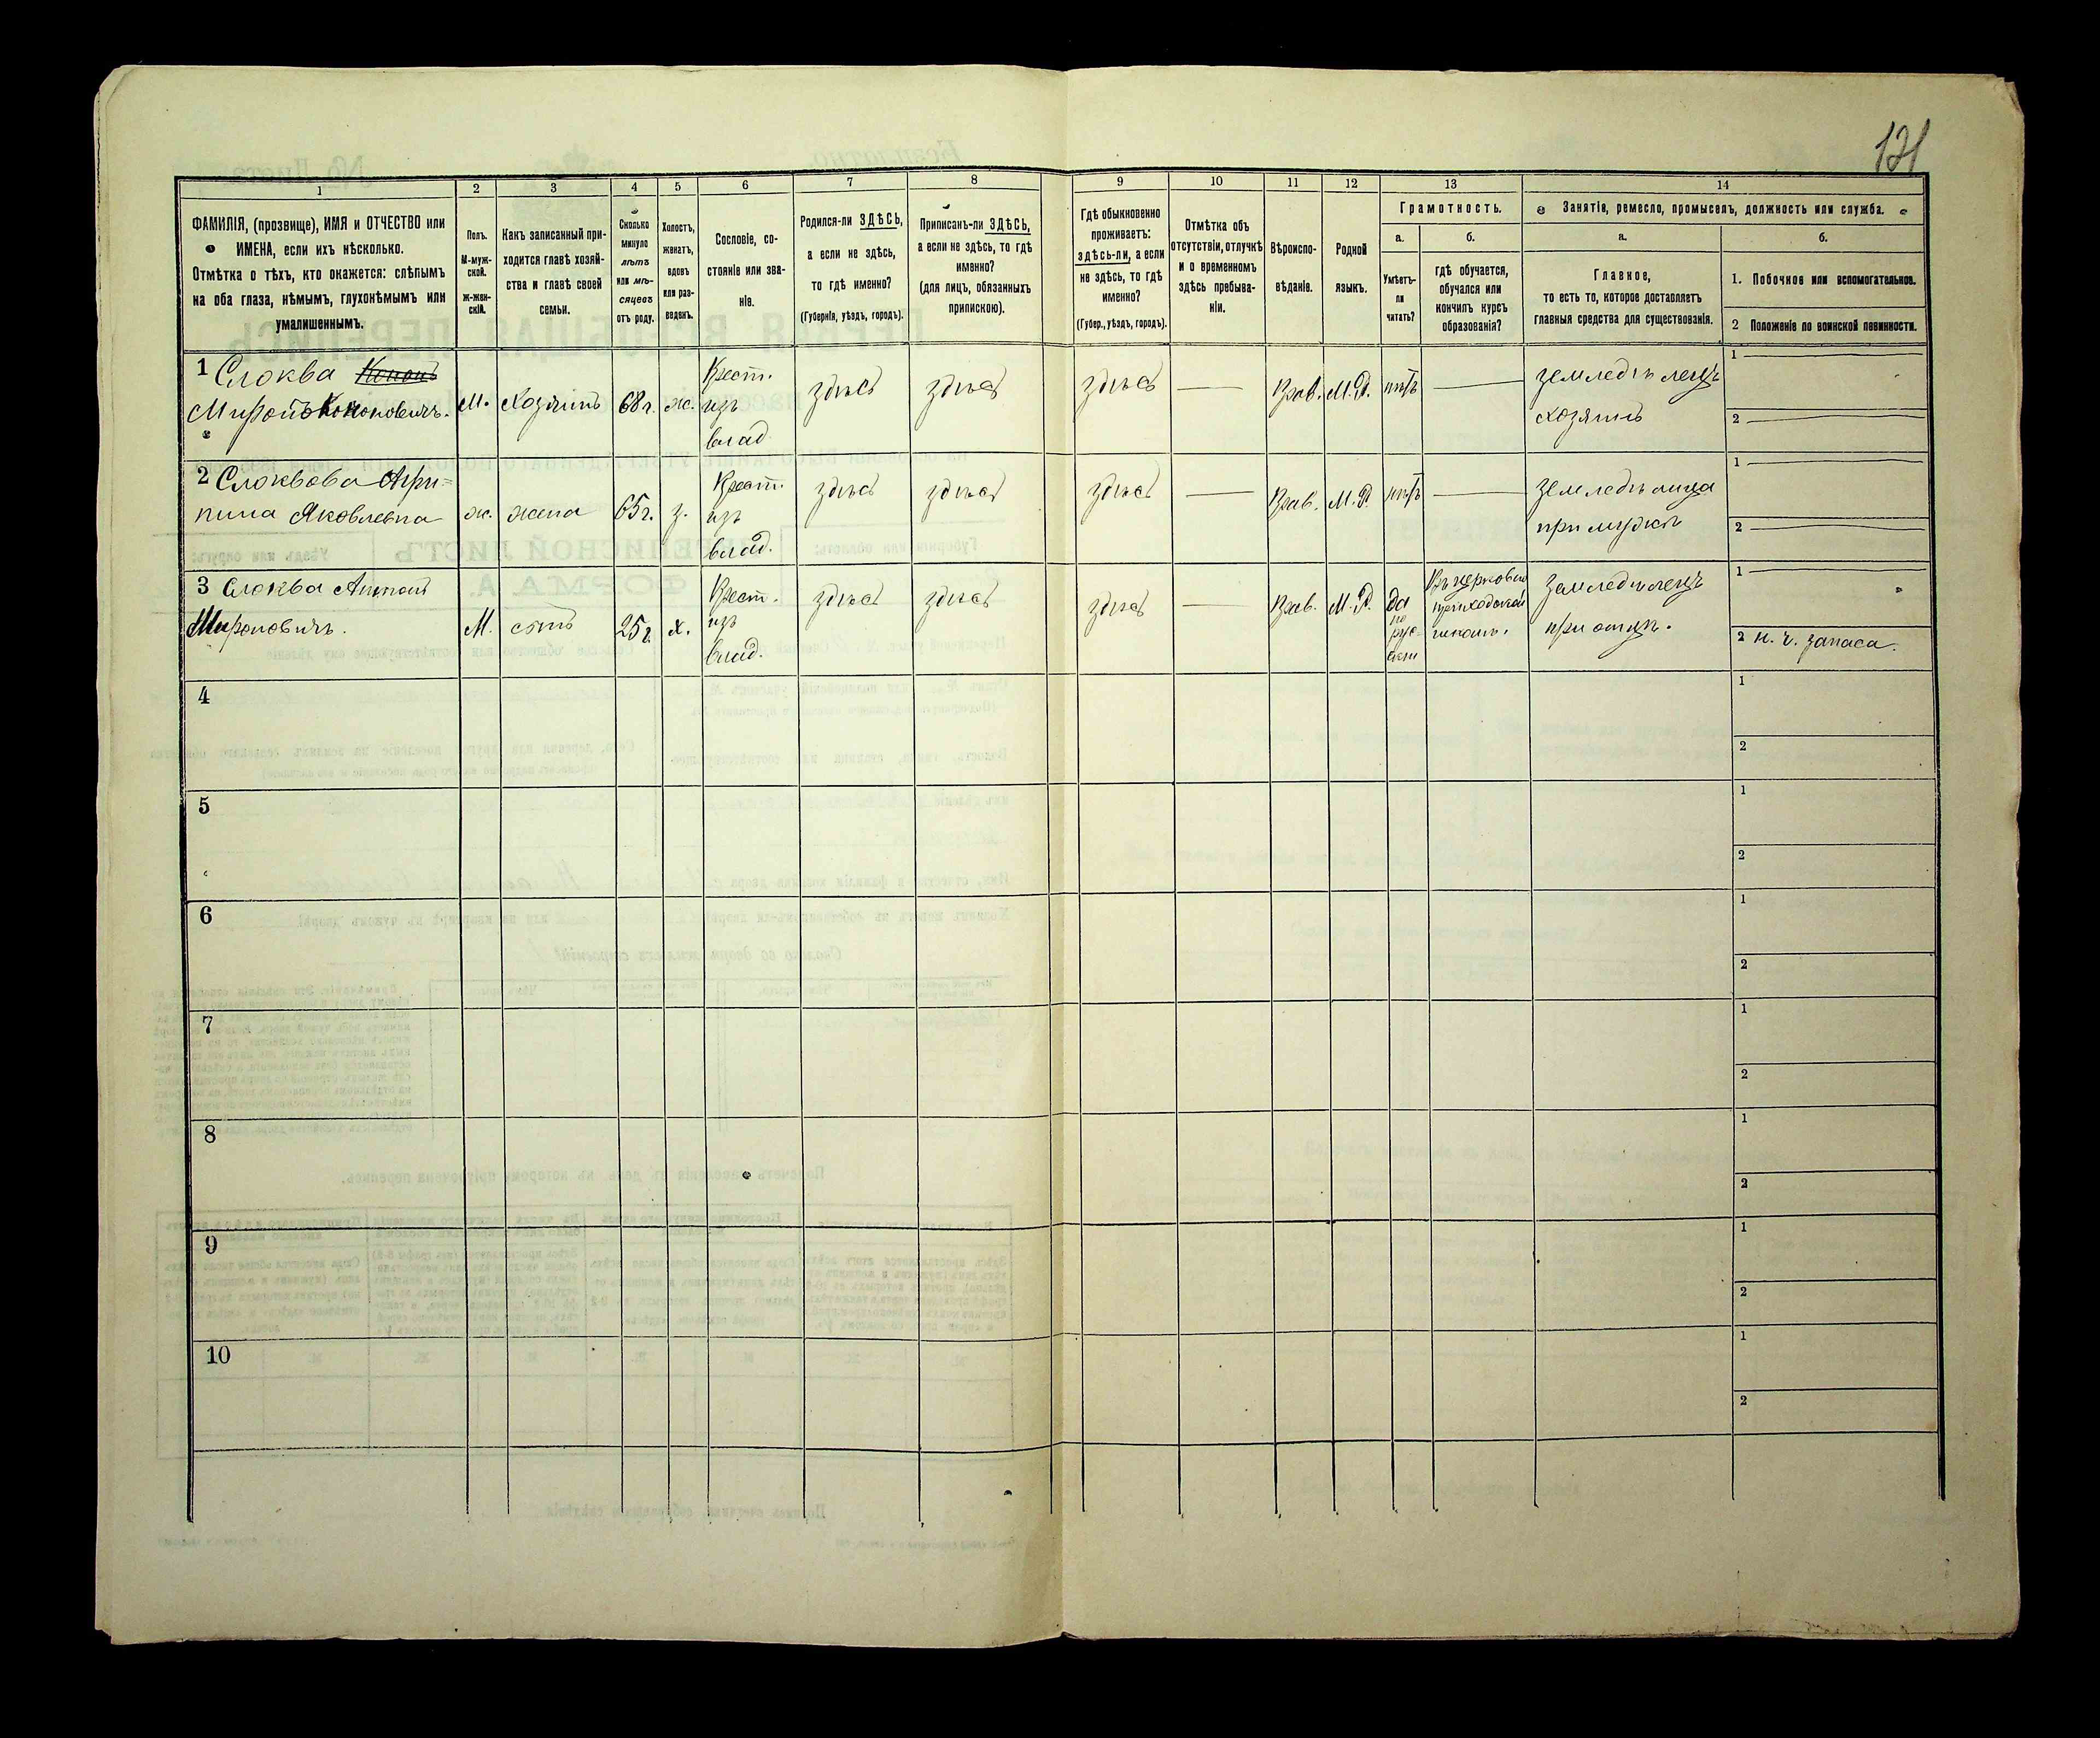 121
1
2
3
4
5
6
7
8
9
10
11
12
13
14
ФАМИЛІЯ, (прозвище), ИМЯ и ОТЧЕСТВО или
ИМЕНА, если ихъ нѣсколько.
Отмѣтка о тѣхъ, кто окажется: слѣпымъ
на оба глаза, нѣмымъ, глухонѣмымъ или
умалишеннымъ.
Полъ.
М-муж-
ской.
ж-жен-
скій.
Какъ записанный при-
ходится главѣ хозяй-
ства и главѣ своей
семьи.
Сколько
минуло
лѣтъ
или мѣ-
сяцевъ
отъ роду.
Холостъ,
женатъ,
вдовъ
или раз-
веденъ.
Сословіе, со-
стояніе или зва-
ніе.
Родился-ли ЗДѢСЬ,
а если не здѣсь,
то гдѣ именно?
(Губернія, уѣздъ, городъ).
Приписанъ-ли ЗДѢСЬ,
а если не здѣсь, то гдѣ
именно?
(для лицъ, обязанныхъ
припискою).
Гдѣ обыкновенно
проживаетъ:
здѣсь-ли, а если
не здѣсь, то гдѣ
именно?
(Губер., уѣздъ, городъ).
Отмѣтка объ
отсутствіи, отлучкѣ
и о временномъ
здѣсь пребыва-
ніи.
Вѣроиспо-
вѣданіе.
Родной
языкъ.
Грамотность.
а.
Умѣетъ-
ли
читать?
б.
гдѣ обучается,
обучался или
кончилъ курсъ
образованія?
Занятія, ремесло, промыселъ, должность или служба.
а.
Главное,
то есть то, которое доставляетъ
главныя средства для существованія.
б.
1. Побочное или вспомогательное.
2 Положеніе по воинской повинности.
1 Слоква Кононъ
Миронъ Кононовичъ.
М.
Хозяинъ
68 г.
ж.
Крест.
изъ
влад.
здѣсь
здѣсь
здѣсь
Прав.
М. Р.
нѣтъ
земледѣлецъ
хозяинъ
1
2
2 Слоквова Агри=
пина Яковлевна
ж.
жена
65 г.
з.
Крест.
изъ
влад.
здѣсь
здѣсь
здѣсь
Прав.
М. Р.
нѣтъ
земледѣлица
при мужѣ
1
2
3 Слоква Антонъ
Мироновичъ.
М.
сынъ
25 г.
х.
Крест.
изъ
влад.
здѣсь
здѣсь
здѣсь
Прав.
М. Р.
да
по
рус-
ски
Въ церковно
приходской
школѣ.
Земледѣлецъ
при отцѣ.
1
2 н. ч. запаса.
4
1
2
5
1
2
6
1
2
7
1
2
8
1
2
9
1
2
10
1
2